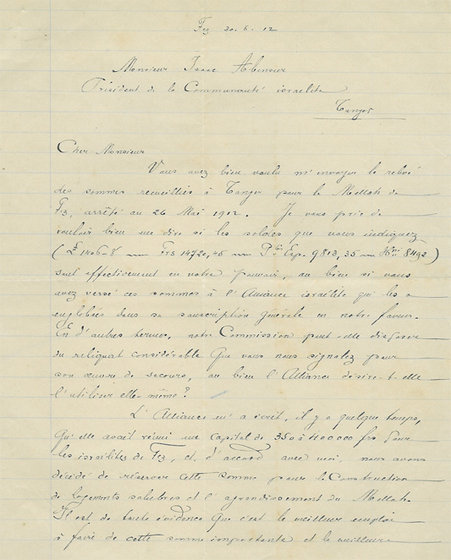 Fez 30. 6. 12
Monsieur Isaac Abensur
Président de la Communauté israélite
Tanger
Cher Monsieur
Vous avez bien voulu m'envoyer le relevé
des sommes recueillies à Tanger pour le Mellah de
Fez, arrêté au 26 Mai 1912. Je vous prie de
vouloir bien me dire si les soldes que vous indiquez
( Frs 1472,45 Esp. 9813,35 8492)
sont effectivement en votre pouvoir, ou bien si vous
avez versé ces sommes à l'Alliance israélite qui les a
englobées dans sa souscription générale en notre faveur.
En d'autres termes, notre Commission peut-elle disposer
du reliquat considérable que vous nous signalez pour
son œuvre de secours, ou bien l'Alliance désire-t-elle
l'utiliser elle même ?
L'Alliance m'a écrit, il y a quelque temps,
qu'elle avait réuni une capital de 350 à 400000 frs pour
les israélites de Fez, et, d'accord avec moi, nous avons
décidé de réserver cette somme pour la Construction
de logements salubres et l'agrandissement du Mellah.
Il est de toute évidence que c'est le meilleur emploi
à faire de cette somme importante et la meilleure